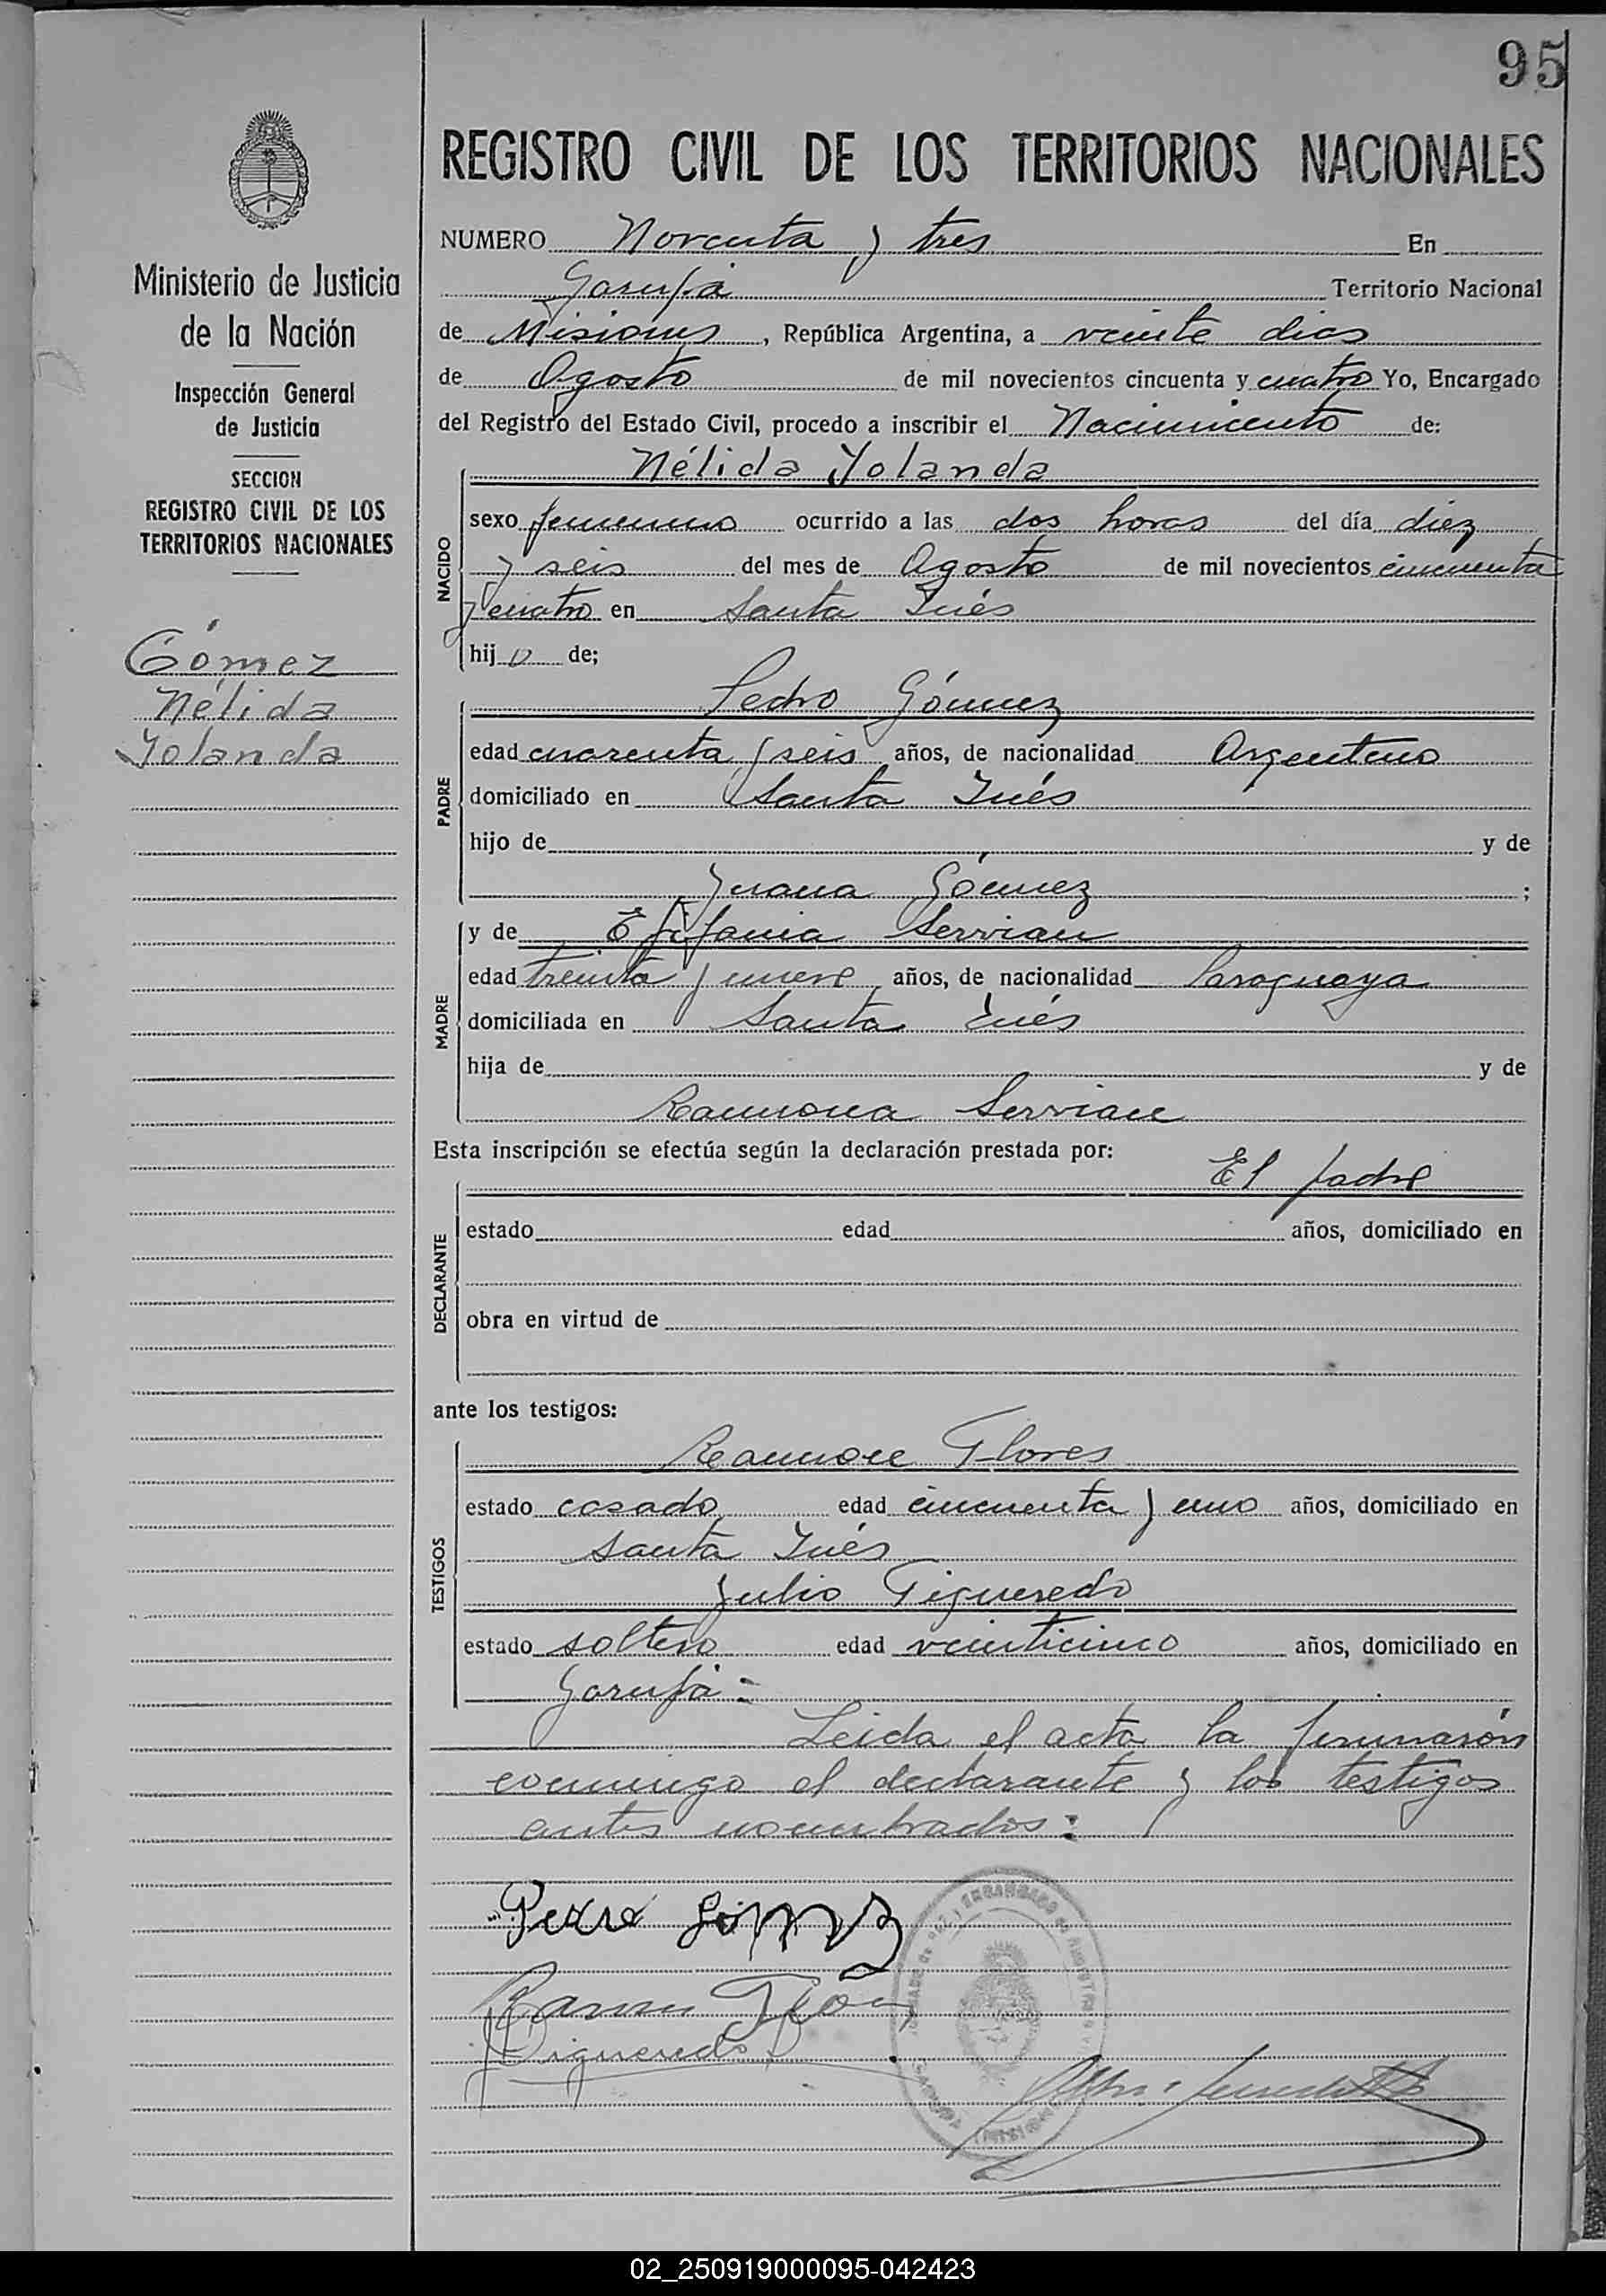 95
REGISTRO CIVIL DE LOS TERRITORIOS NACIONALES
Ministerio de Justicia
de la Nación
Inspección General
de Justicia
SECCION
REGISTRO CIVIL DE LOS
TERRITORIOS NACIONALES
Gómez
Nélida
Yolanda
NUMERO Noventa y tres En
Garupá Territorio Nacional
de Misiones, República Argentina, a veinte dias
de Agosto de mil novecientos cincuenta y cuatro Yo, Encargado
del Registro del Estado Civil, procedo a inscribir el Nacimiento de:
NACIDO
Nélida Yolanda
sexo femenino ocurrido a las dos horas del día diez
y seis del mes de Agosto de mil novecientos cincuenta
y cuatro en Santa Inés
hij a de;
PADRE
Pedro Gómez
edad cuarenta y seis años, de nacionalidad Argentino
domiciliado en Santa Inés
hijo de y de
Juana Gómez ;
MADRE
y de Epifania Servian
edad treinta y nueve años, de nacionalidad Paraguaya
domiciliada en Santa Inés
hija de y de
Ramona Servian
Esta inscripción se efectúa según la declaración prestada por:
DECLARANTE
El padre
estado edad años, domiciliado en
obra en virtud de
ante los testigos:
TESTIGOS
Ramon Flores
estado casado edad cincuenta y uno años, domiciliado en
Santa Inés
Julio Figueredo
estado soltero edad veinticinco años, domiciliado en
Garupá =
Leida el acta la firmarón
conmigo el declarante y los testigos
antes nombrados:
Pedro Gómez
Ramon Flores
Figueredo
02_250919000095-042423